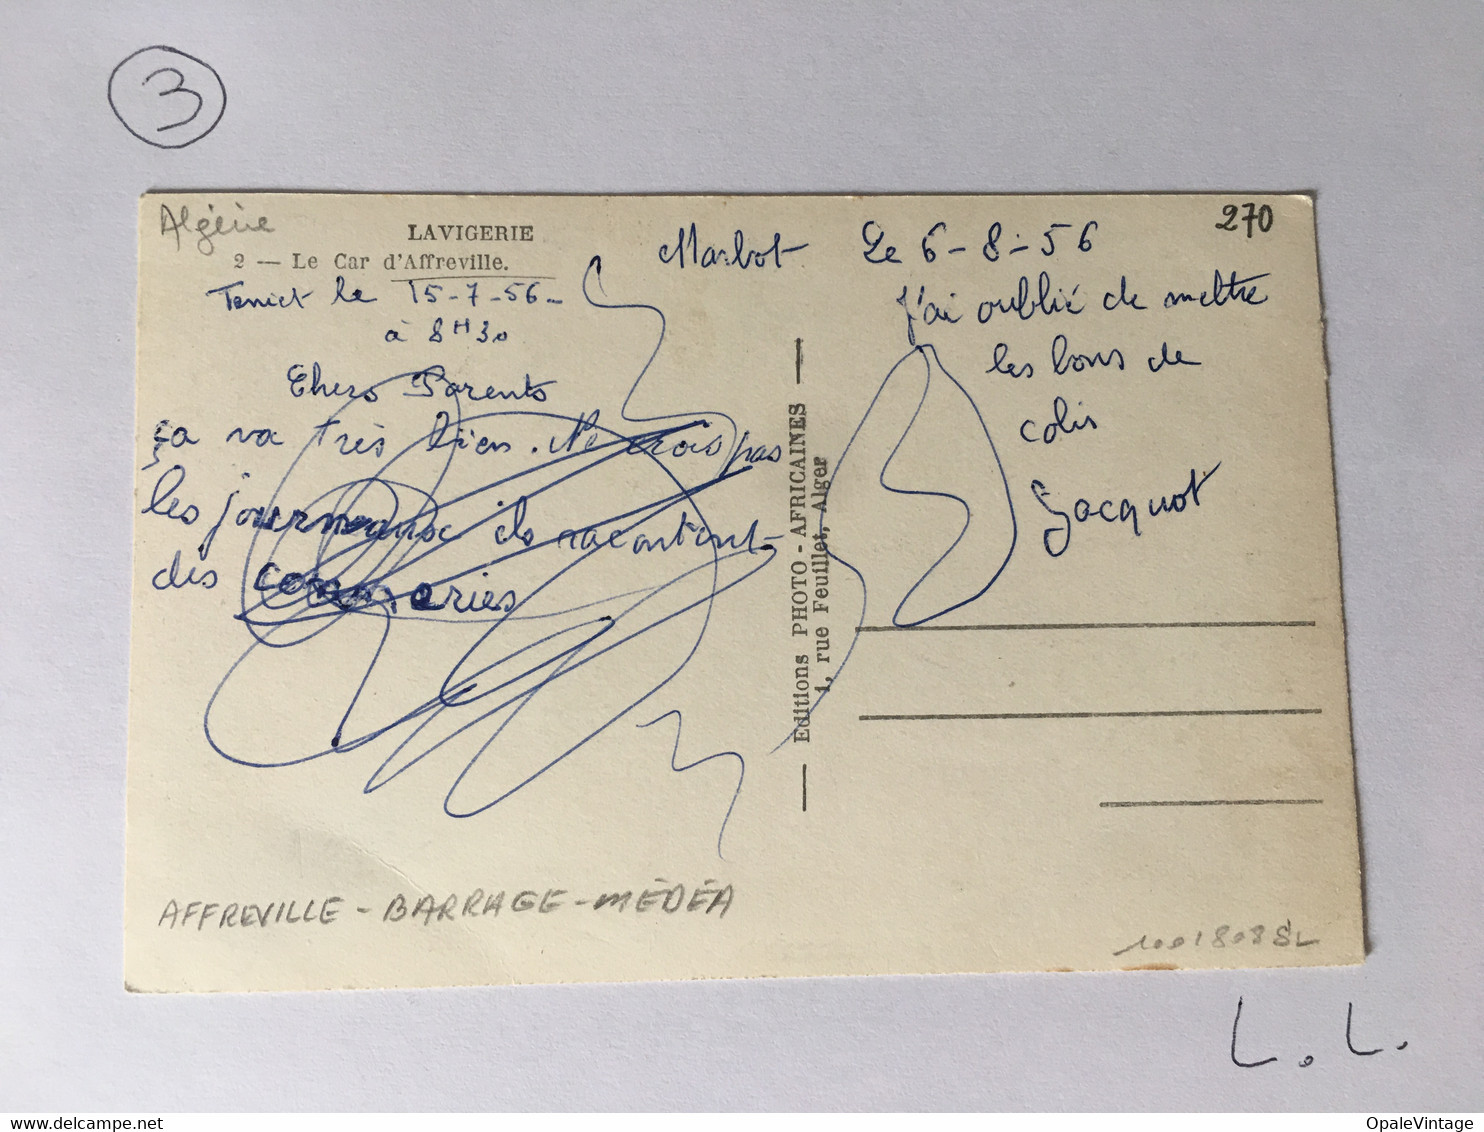 3
Algérie
LAVIGERIE
2 — Le Car d'Affreville.
270
Teniet le 15-7-56
à 8H30
Chers Parents
ça va très bien. Ne crois pas
les journeaux ils racontent
des conneries
Marbot Le 6-8-56
J'ai oublié de mettre
les bons de
colis
Jacquot
Editions PHOTO-AFRICAINES
1, rue Feuillet, Alger
AFFREVILLE - BARRAGE - MÉDÉA
L. L.
OpaleVintage